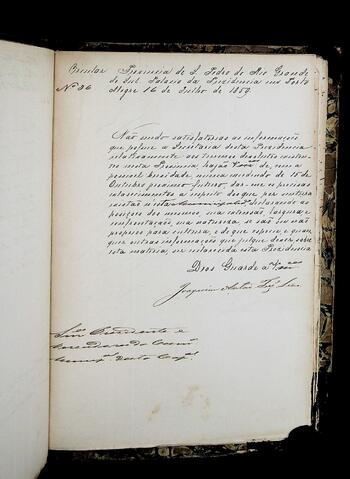 Circular Provincia de S. Pedro do Rio Grande
do Sul. Palacio da Presidencia em Porto
Nº 36 Alegre 16 de Julho de 1859.
Não sendo satisfatorias as informações
que possue a Secretaria desta Presidencia
relativamente aos terrenos devolutos existen-
tes nesta Provincia, hajão Vmces de, com a
possivel brevidade, e nunca excedendo de 15 de
Outubro proximo futuro, dar-me os precisos
esclarecimentos a respeito dos que por ventura
existão n'esse Municipio, declarando as
posições dos mesmos, sua extensão, largura, e
confrontações, sua natureza, se são ou não
proprios para cultura, e de que especie, e quaes-
quer outras informações que julgue dever sobre
esta materia, ser esclarecida esta Presidencia
Deos Guarde a Vmces
Joaquim Antão Fez Leão
Snr. Presidente e
Vereadores da Camª
Municipal desta Cap.